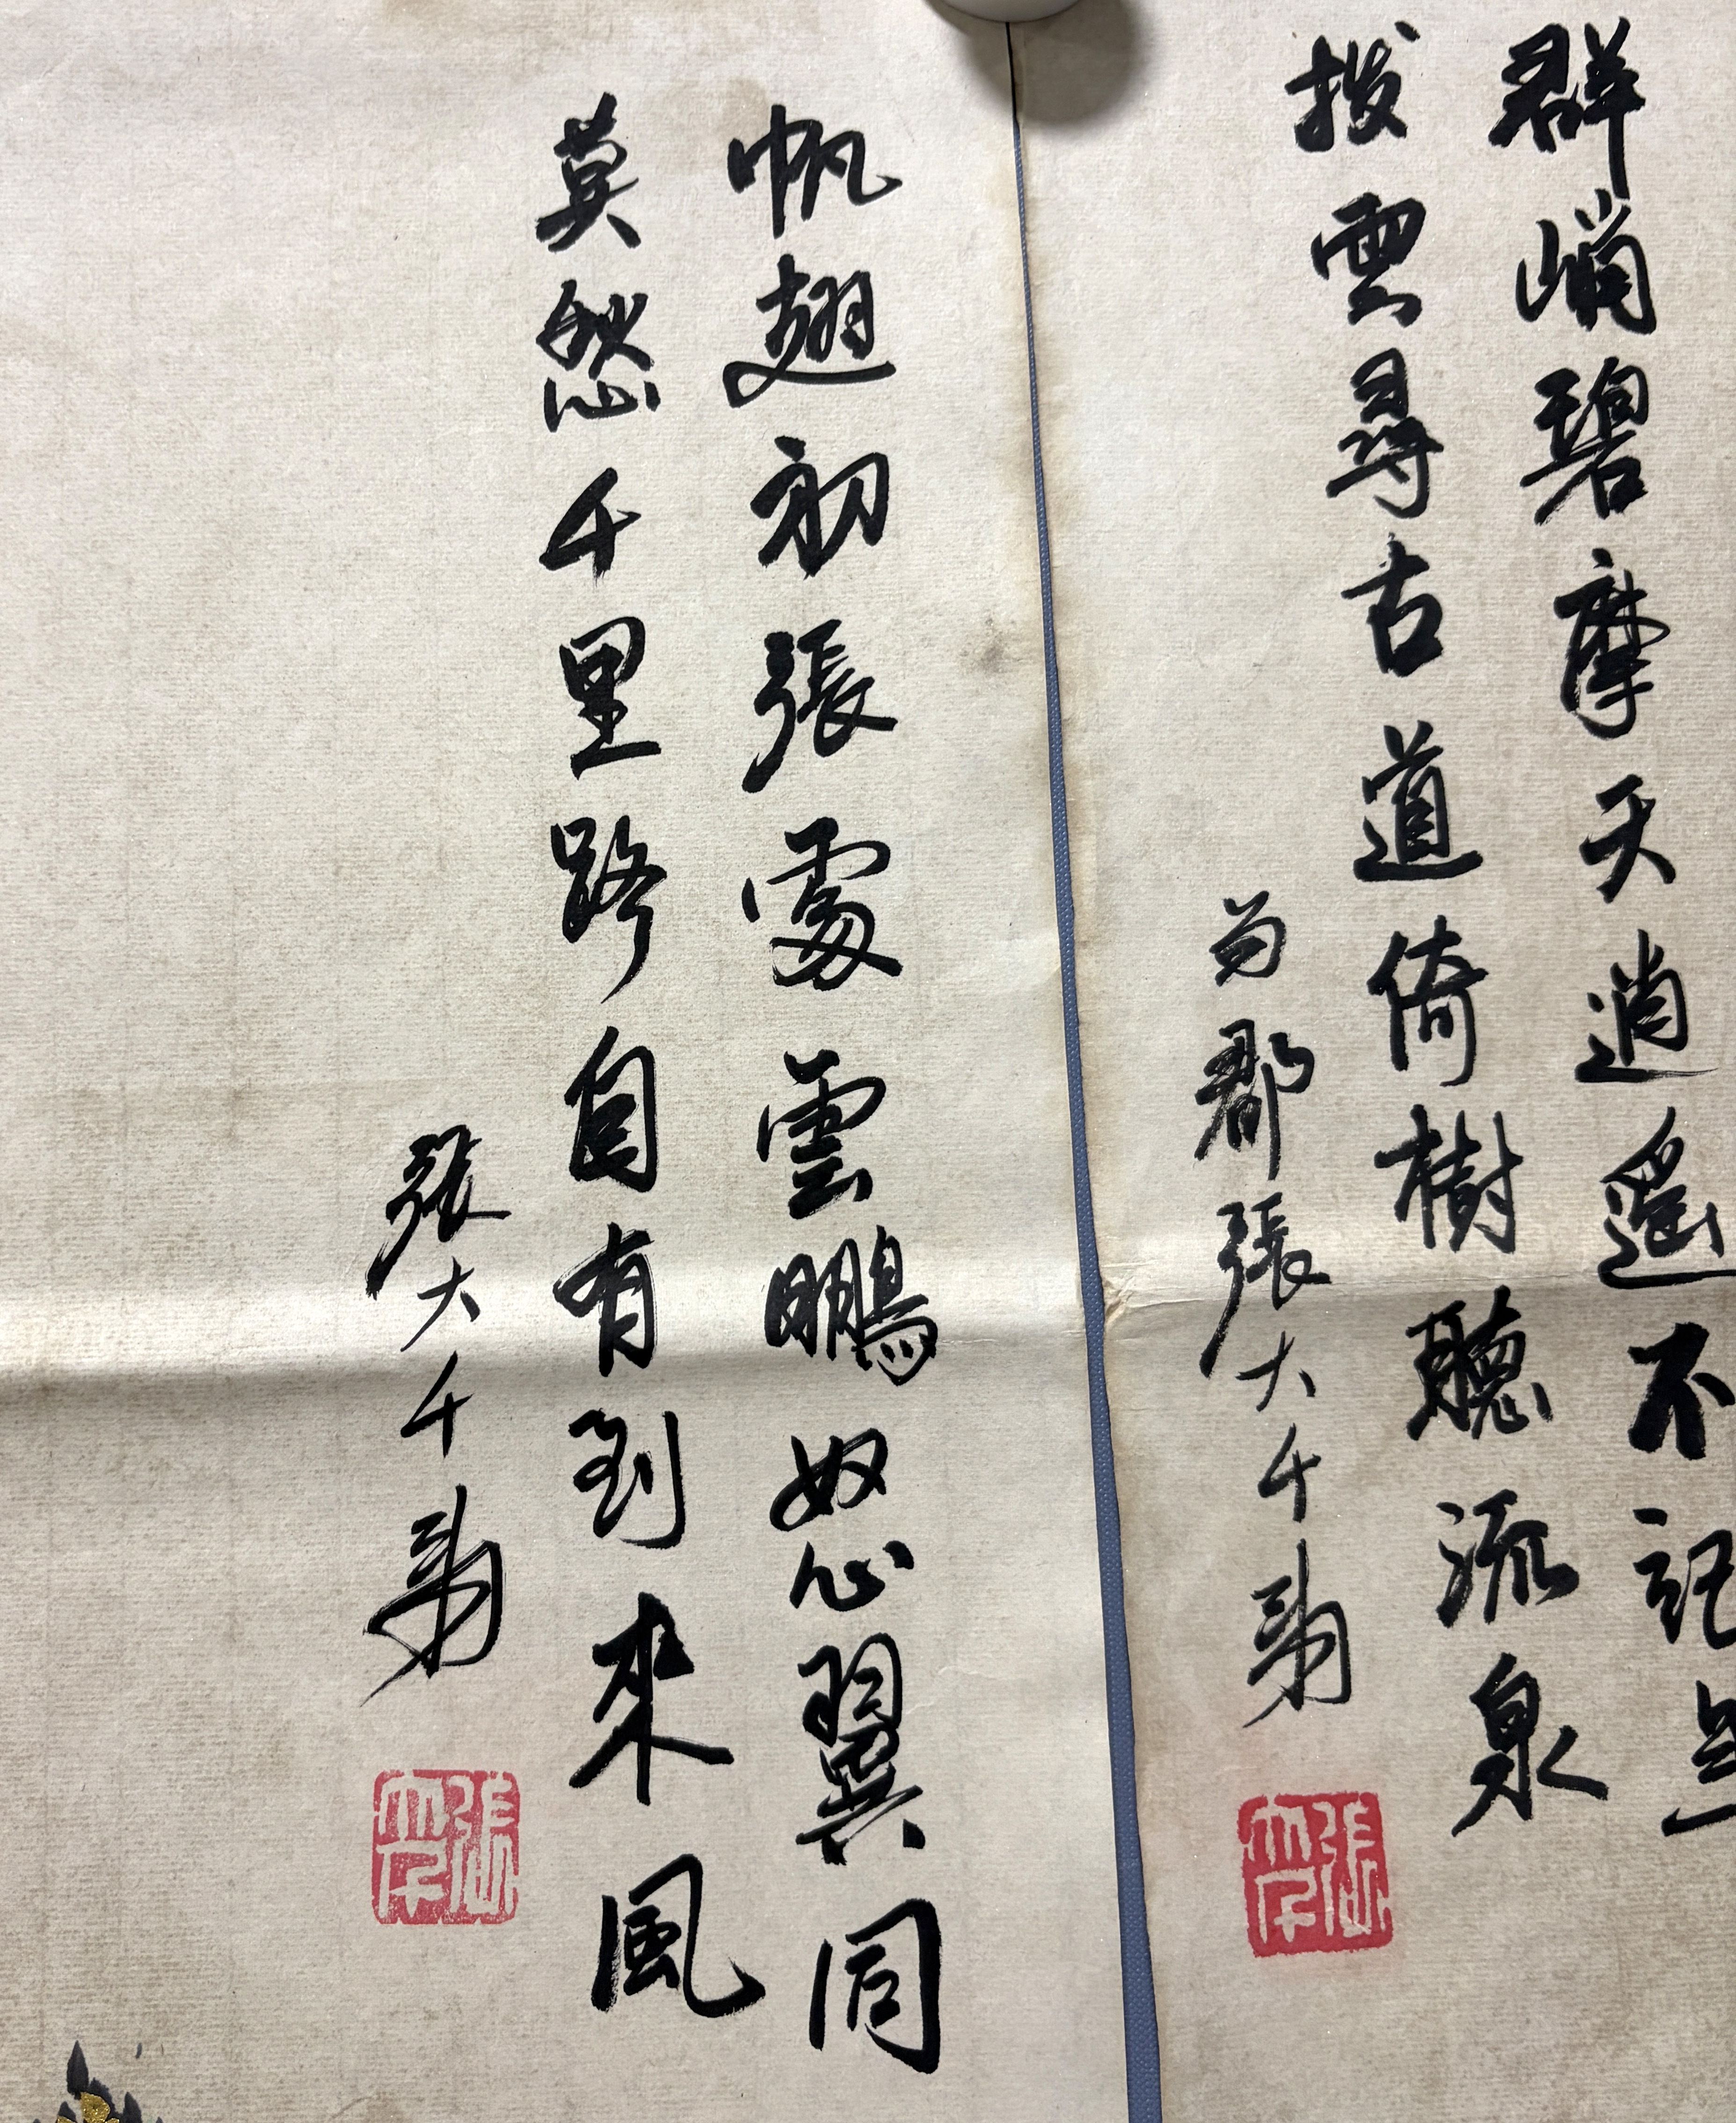 群峭碧摩天逍遙不記年
撥雲尋古道倚樹聽流泉
蜀郡張大千爰
帆翅初張處雲鵬怒翼同
莫愁千里路自有到來風
張大千爰
張爰
大千
張爰
大千